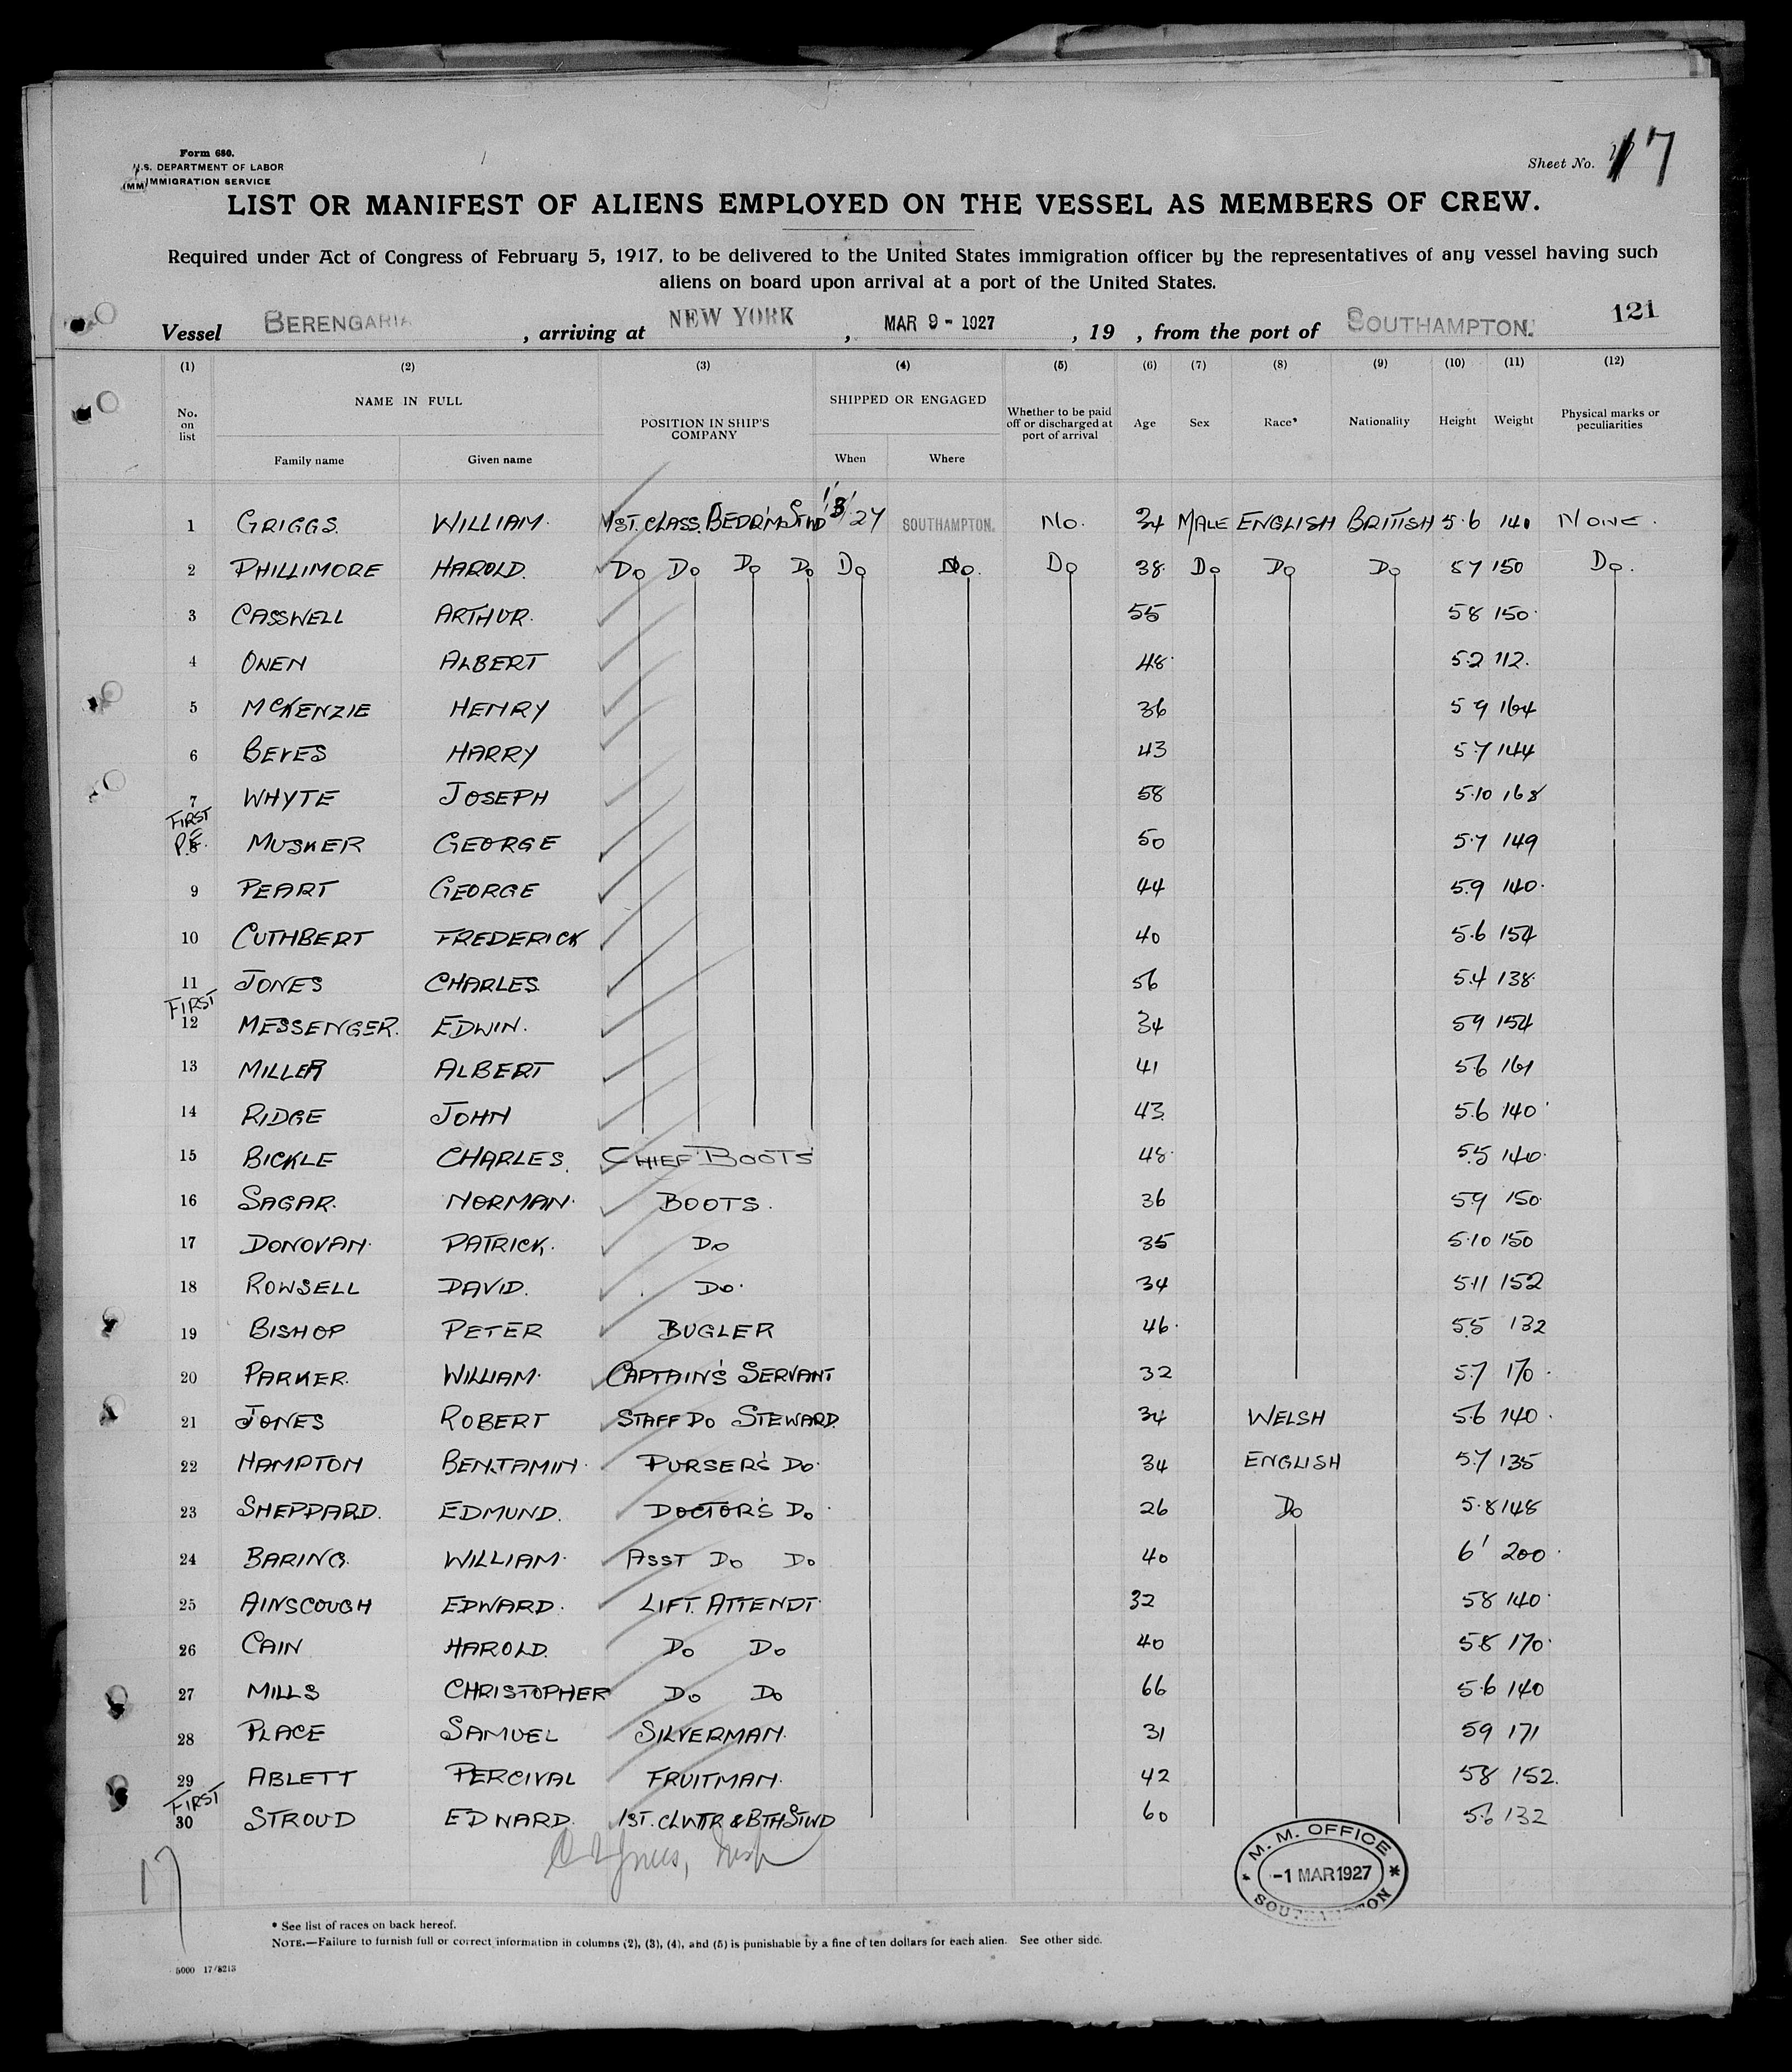 Form 680.
U.S. DEPARTMENT OF LABOR
(MM) IMMIGRATION SERVICE
Sheet No. 17
LIST OR MANIFEST OF ALIENS EMPLOYED ON THE VESSEL AS MEMBERS OF CREW.
Required under Act of Congress of February 5, 1917, to be delivered to the United States immigration officer by the representatives of any vessel having such
aliens on board upon arrival at a port of the United States.
121
Vessel BERENGARIA, arriving at NEW YORK, MAR 9 - 1927, 19 , from the port of SOUTHAMPTON.
(1) (2) (3) (4) (5) (6) (7) (8) (9) (10) (11) (12)
No. on list NAME IN FULL POSITION IN SHIP'S COMPANY SHIPPED OR ENGAGED Whether to be paid off or discharged at port of arrival Age Sex Race* Nationality Height Weight Physical marks or peculiarities
Family name Given name When Where
1 GRIGGS. WILLIAM. 1ST. CLASS. BEDR'M STWD 1/3/27 SOUTHAMPTON. NO. 34 MALE ENGLISH BRITISH 5.6 140 NONE.
2 PHILLIMORE HAROLD. DO DO DO DO DO DO. DO 38. DO DO DO 57 150 DO.
3 CASSWELL ARTHUR. 55 58 150.
4 OWEN ALBERT 48. 5.2 112.
5 MCKENZIE HENRY 36 59 164
6 BEYES HARRY 43 5.7 144
7 WHYTE JOSEPH 58 5.10 168
FIRST
P.E. 8 MUSKER GEORGE 50 5.7 149
9 PEART GEORGE 44 5.9 140.
10 CUTHBERT FREDERICK 40 5.6 154
11 JONES CHARLES. 56 5.4 138.
FIRST
12 MESSENGER. EDWIN. 34 59 154
13 MILLER ALBERT 41 5.6 161
14 RIDGE JOHN 43. 5.6 140
15 BICKLE CHARLES. CHIEF BOOTS 48. 5.5 140.
16 SAGAR. NORMAN. BOOTS. 36 5.9 150.
17 DONOVAN. PATRICK. DO 35 5.10 150
18 ROWSELL DAVID. DO. 34 5.11 152
19 BISHOP PETER BUGLER 46. 5.5 132
20 PARKER. WILLIAM. CAPTAIN'S SERVANT 32 5.7 170.
21 JONES ROBERT STAFF DO STEWARD. 34 WELSH 5.6 140.
22 HAMPTON BENJAMIN. PURSER'S DO. 34 ENGLISH 5.7 135
23 SHEPPARD. EDMUND. DOCTOR'S DO. 26 DO 5.8 148
24 BARING. WILLIAM. ASST DO DO 40 6' 200.
25 AINSCOUGH EDWARD. LIFT. ATTENDT. 32 58 140.
26 CAIN HAROLD. DO DO 40 5.8 170.
27 MILLS CHRISTOPHER DO DO 66 5.6 140
28 PLACE SAMUEL SILVERMAN. 31 59 171
29 ABLETT PERCIVAL FRUITMAN. 42 58 152.
FIRST
30 STROUD EDWARD. 1ST. CL WTR & BTH STWD 60 5.6 132
M. M. OFFICE
-1 MAR 1927
SOUTHAMPTON
17
* See list of races on back hereof.
NOTE.—Failure to furnish full or correct information in columns (2), (3), (4), and (5) is punishable by a fine of ten dollars for each alien. See other side.
5000 17/8213